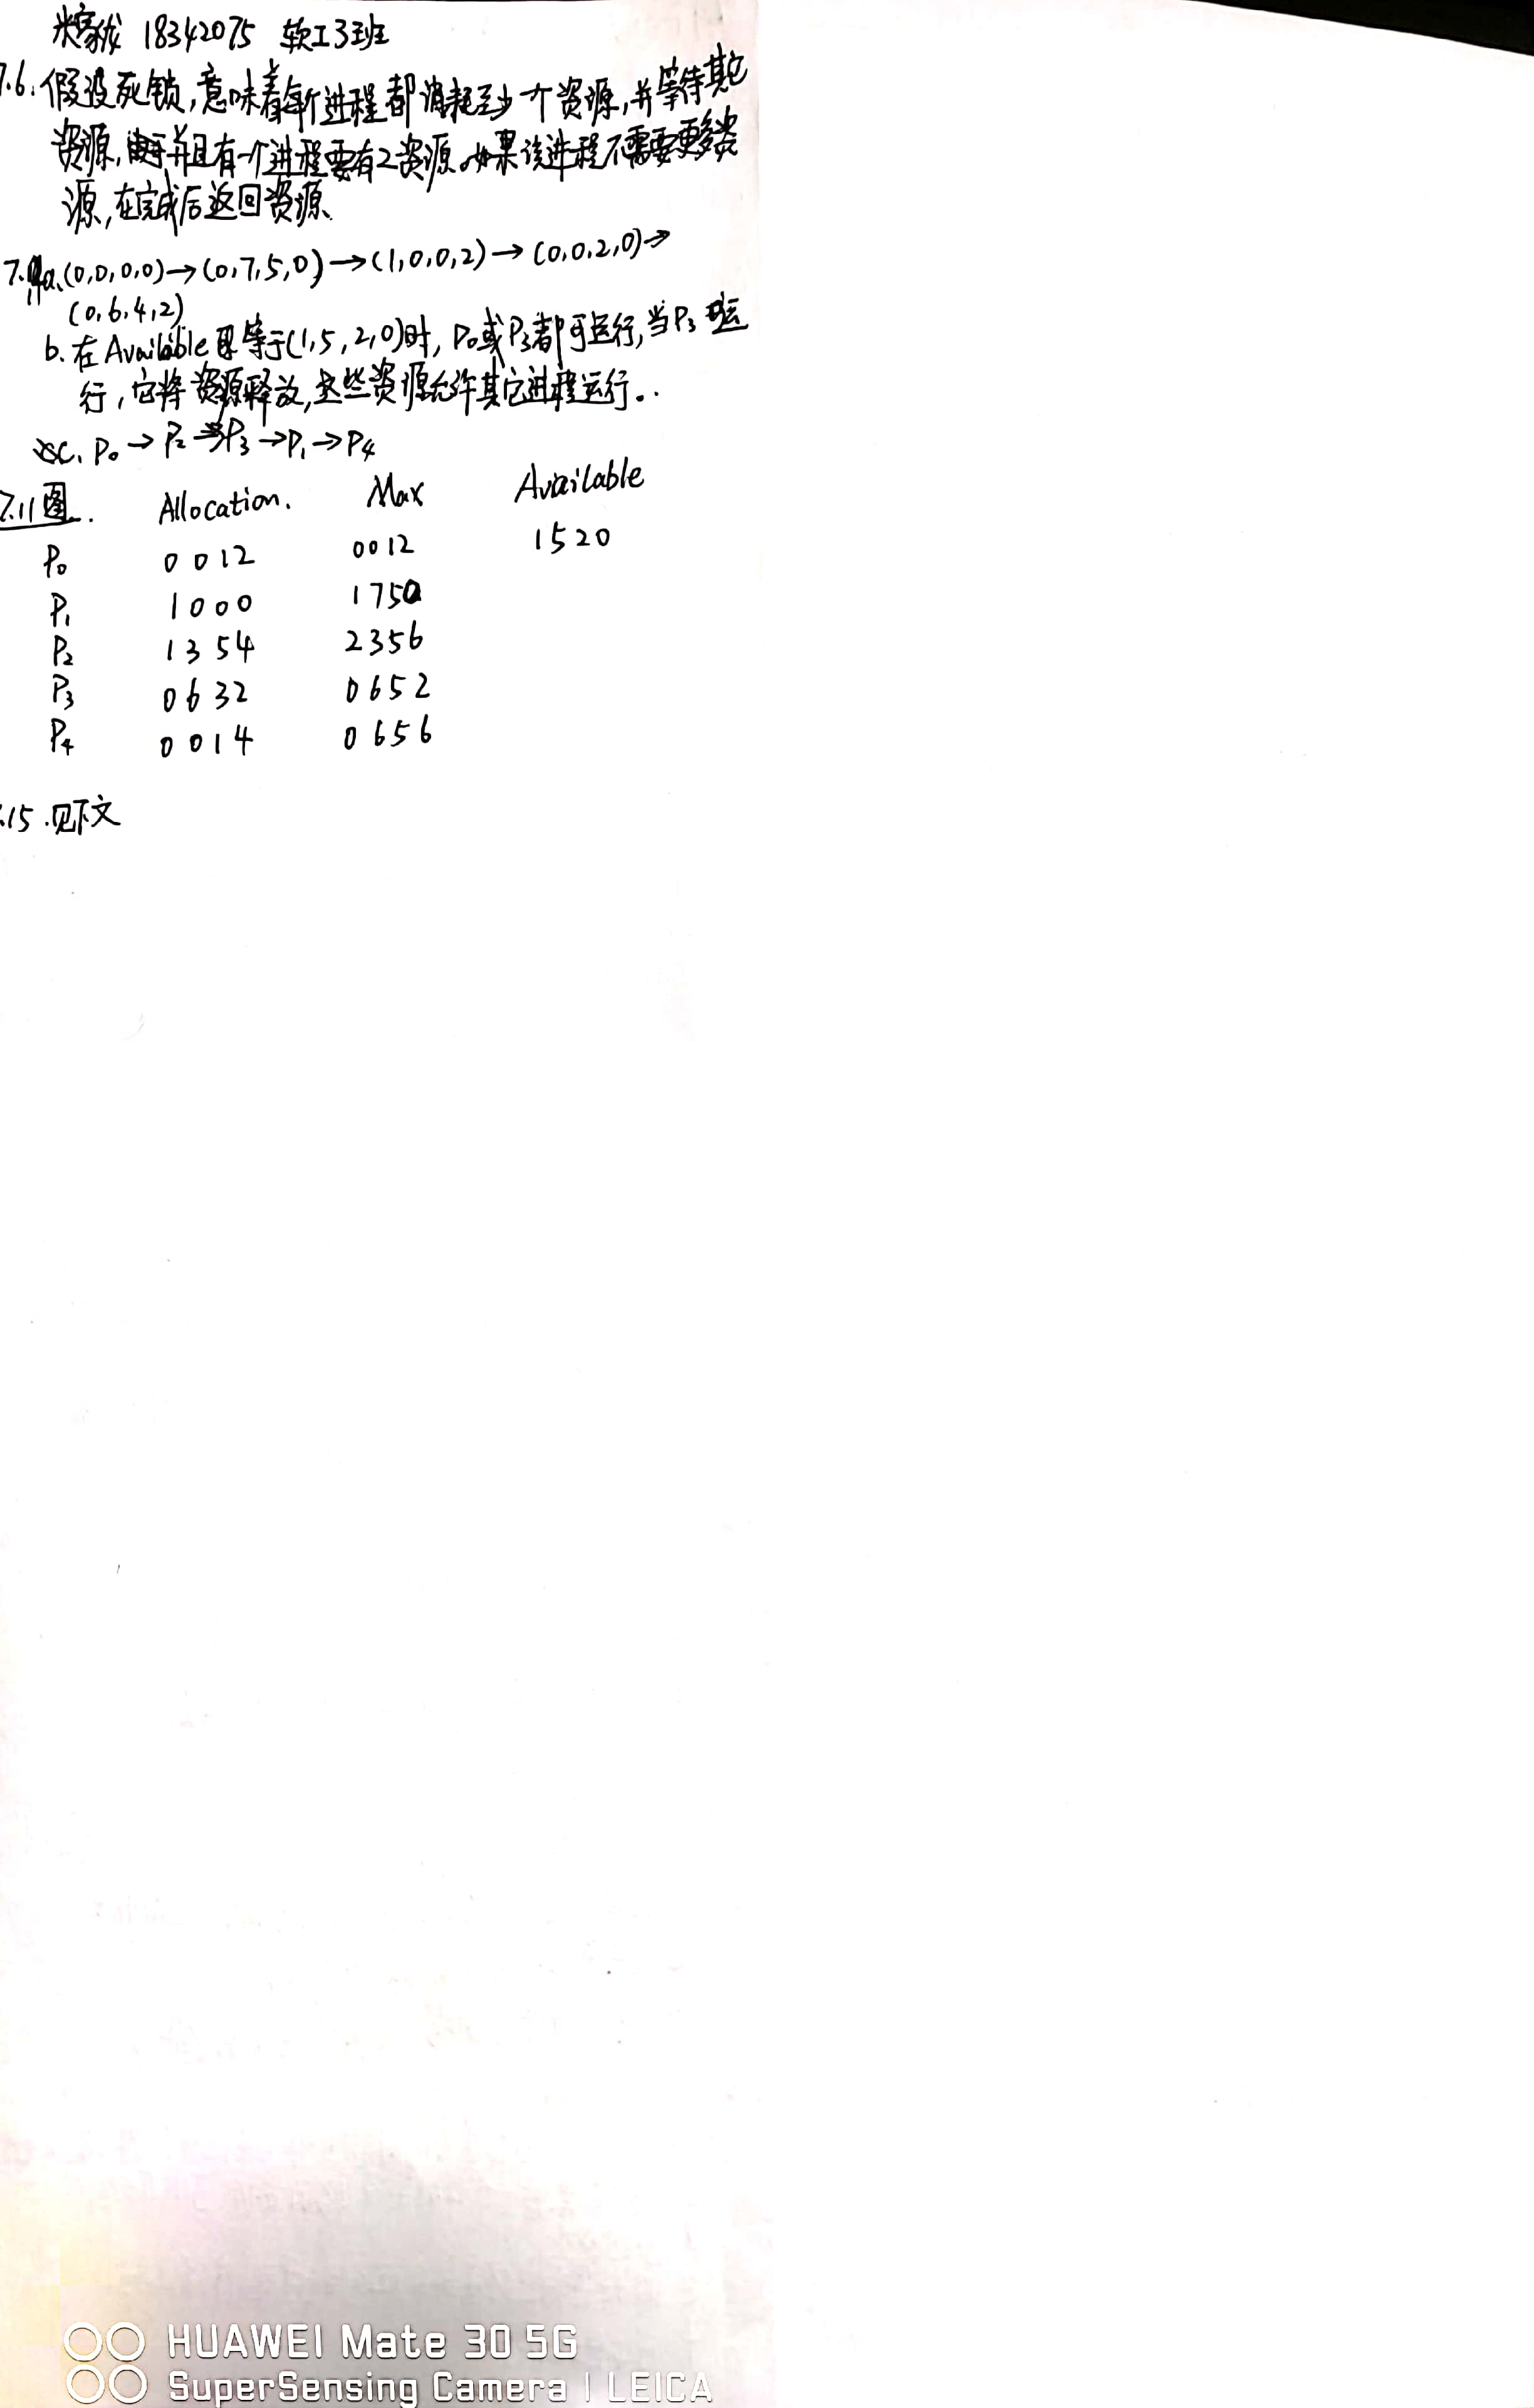 18342075 软工3班
7.6. 假设死锁,意味着每个进程都消耗至少一个资源,并等待其它
资源,由于并且有一个进程要有2资源。如果该进程不需要更多资
源,在完成后返回资源.
7.11a.(0,0,0,0)→(0,7,5,0)→(1,0,0,2)→(0,0,2,0)→
(0,6,4,2)
b. 在Available 等于(1,5,2,0)时, P₀或P₃都可运行,当P₃运
行,它将资源释放,这些资源允许其它进程运行..
c. P₀→P₂→P₃→P₁→P₄
7.11图. Allocation. Max Available
P₀ 0012 0012 1520
P₁ 1000 1750
P₂ 1354 2356
P₃ 0632 0652
P₄ 0014 0656
.15.见下文
HUAWEI Mate 30 5G
SuperSensing Camera | LEICA